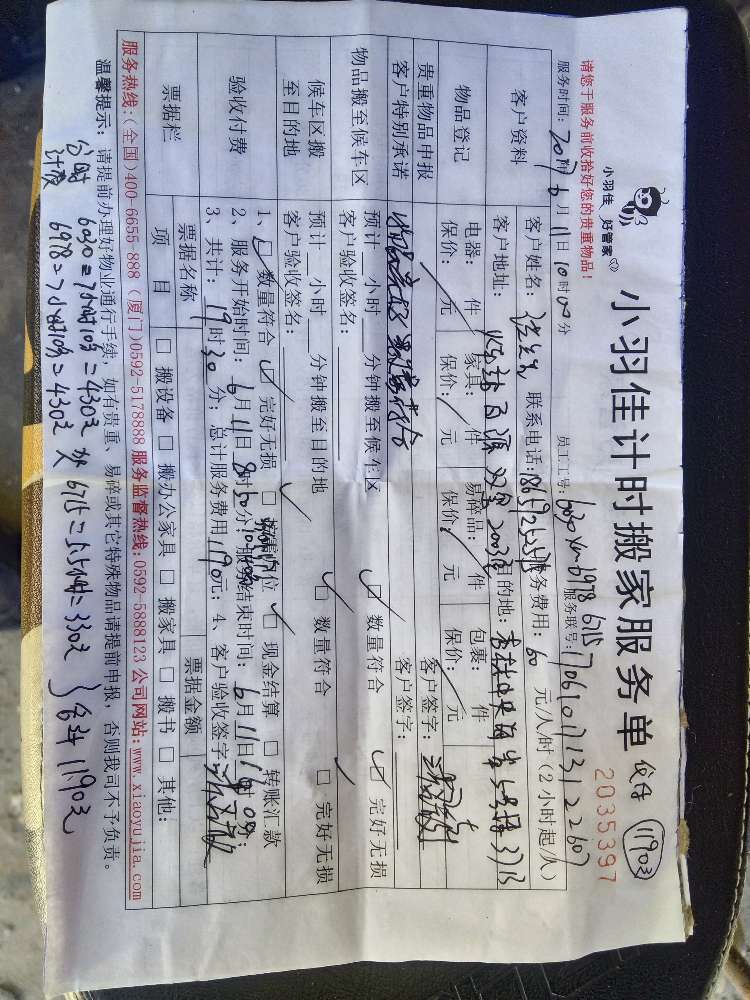 请您于服务前收拾好您的贵重物品!
小羽佳 好管家
小羽佳计时搬家服务单
1190元
2035397
服务时间: 2017年6月11日10时00分 员工工号: 6030 6978 6715 服务联号: 706101713122607
客户资料 客户姓名: 联系电话: 服务费用: 60 元/人/时(2小时起/次)
客户地址: 目的地:
物品登记 电器: 件 家具: 件 易碎品: 件 包裹: 件
保价: 元 保价: 元 保价: 元 保价: 元
贵重物品申报
客户特别承诺 物品完好 数量符合 客户签字:
客户签字:
物品搬至候车区 预计 小时 分钟搬至候车区 □ 数量符合 □ 完好无损
客户验收签名:
候车区搬至目的地 预计 小时 分钟搬至目的地 □ 数量符合 □ 完好无损
客户验收签名:
验收付费 1、□ 数量符合 □ 完好无损 □ 位 □ 现金结算 □ 转账汇款
2、服务开始时间: 6月11日8时50分; 服务结束时间: 6月11日16时00分;
3、共计: 19时30分; 总计服务费用1190元; 4、客户验收签字:
票据栏 票据名称 票据金额
项目 □ 搬设备 □ 搬办公家具 □ 搬家具 □ 搬书 □ 其他:
服务热线:(全国)400-6655-888 (厦门)0592-5178888 服务监督热线:0592-5888123 公司网站:www.xiaoyujia.com
温馨提示: 请提前办理好物业通行手续,如有贵重、易碎或其它特殊物品请提前申报,否则我司不予负责。
分时计费 6030=7小时10分=430元 6715=5.5小时=330元
6978=7小时10分=430元 合计1190元